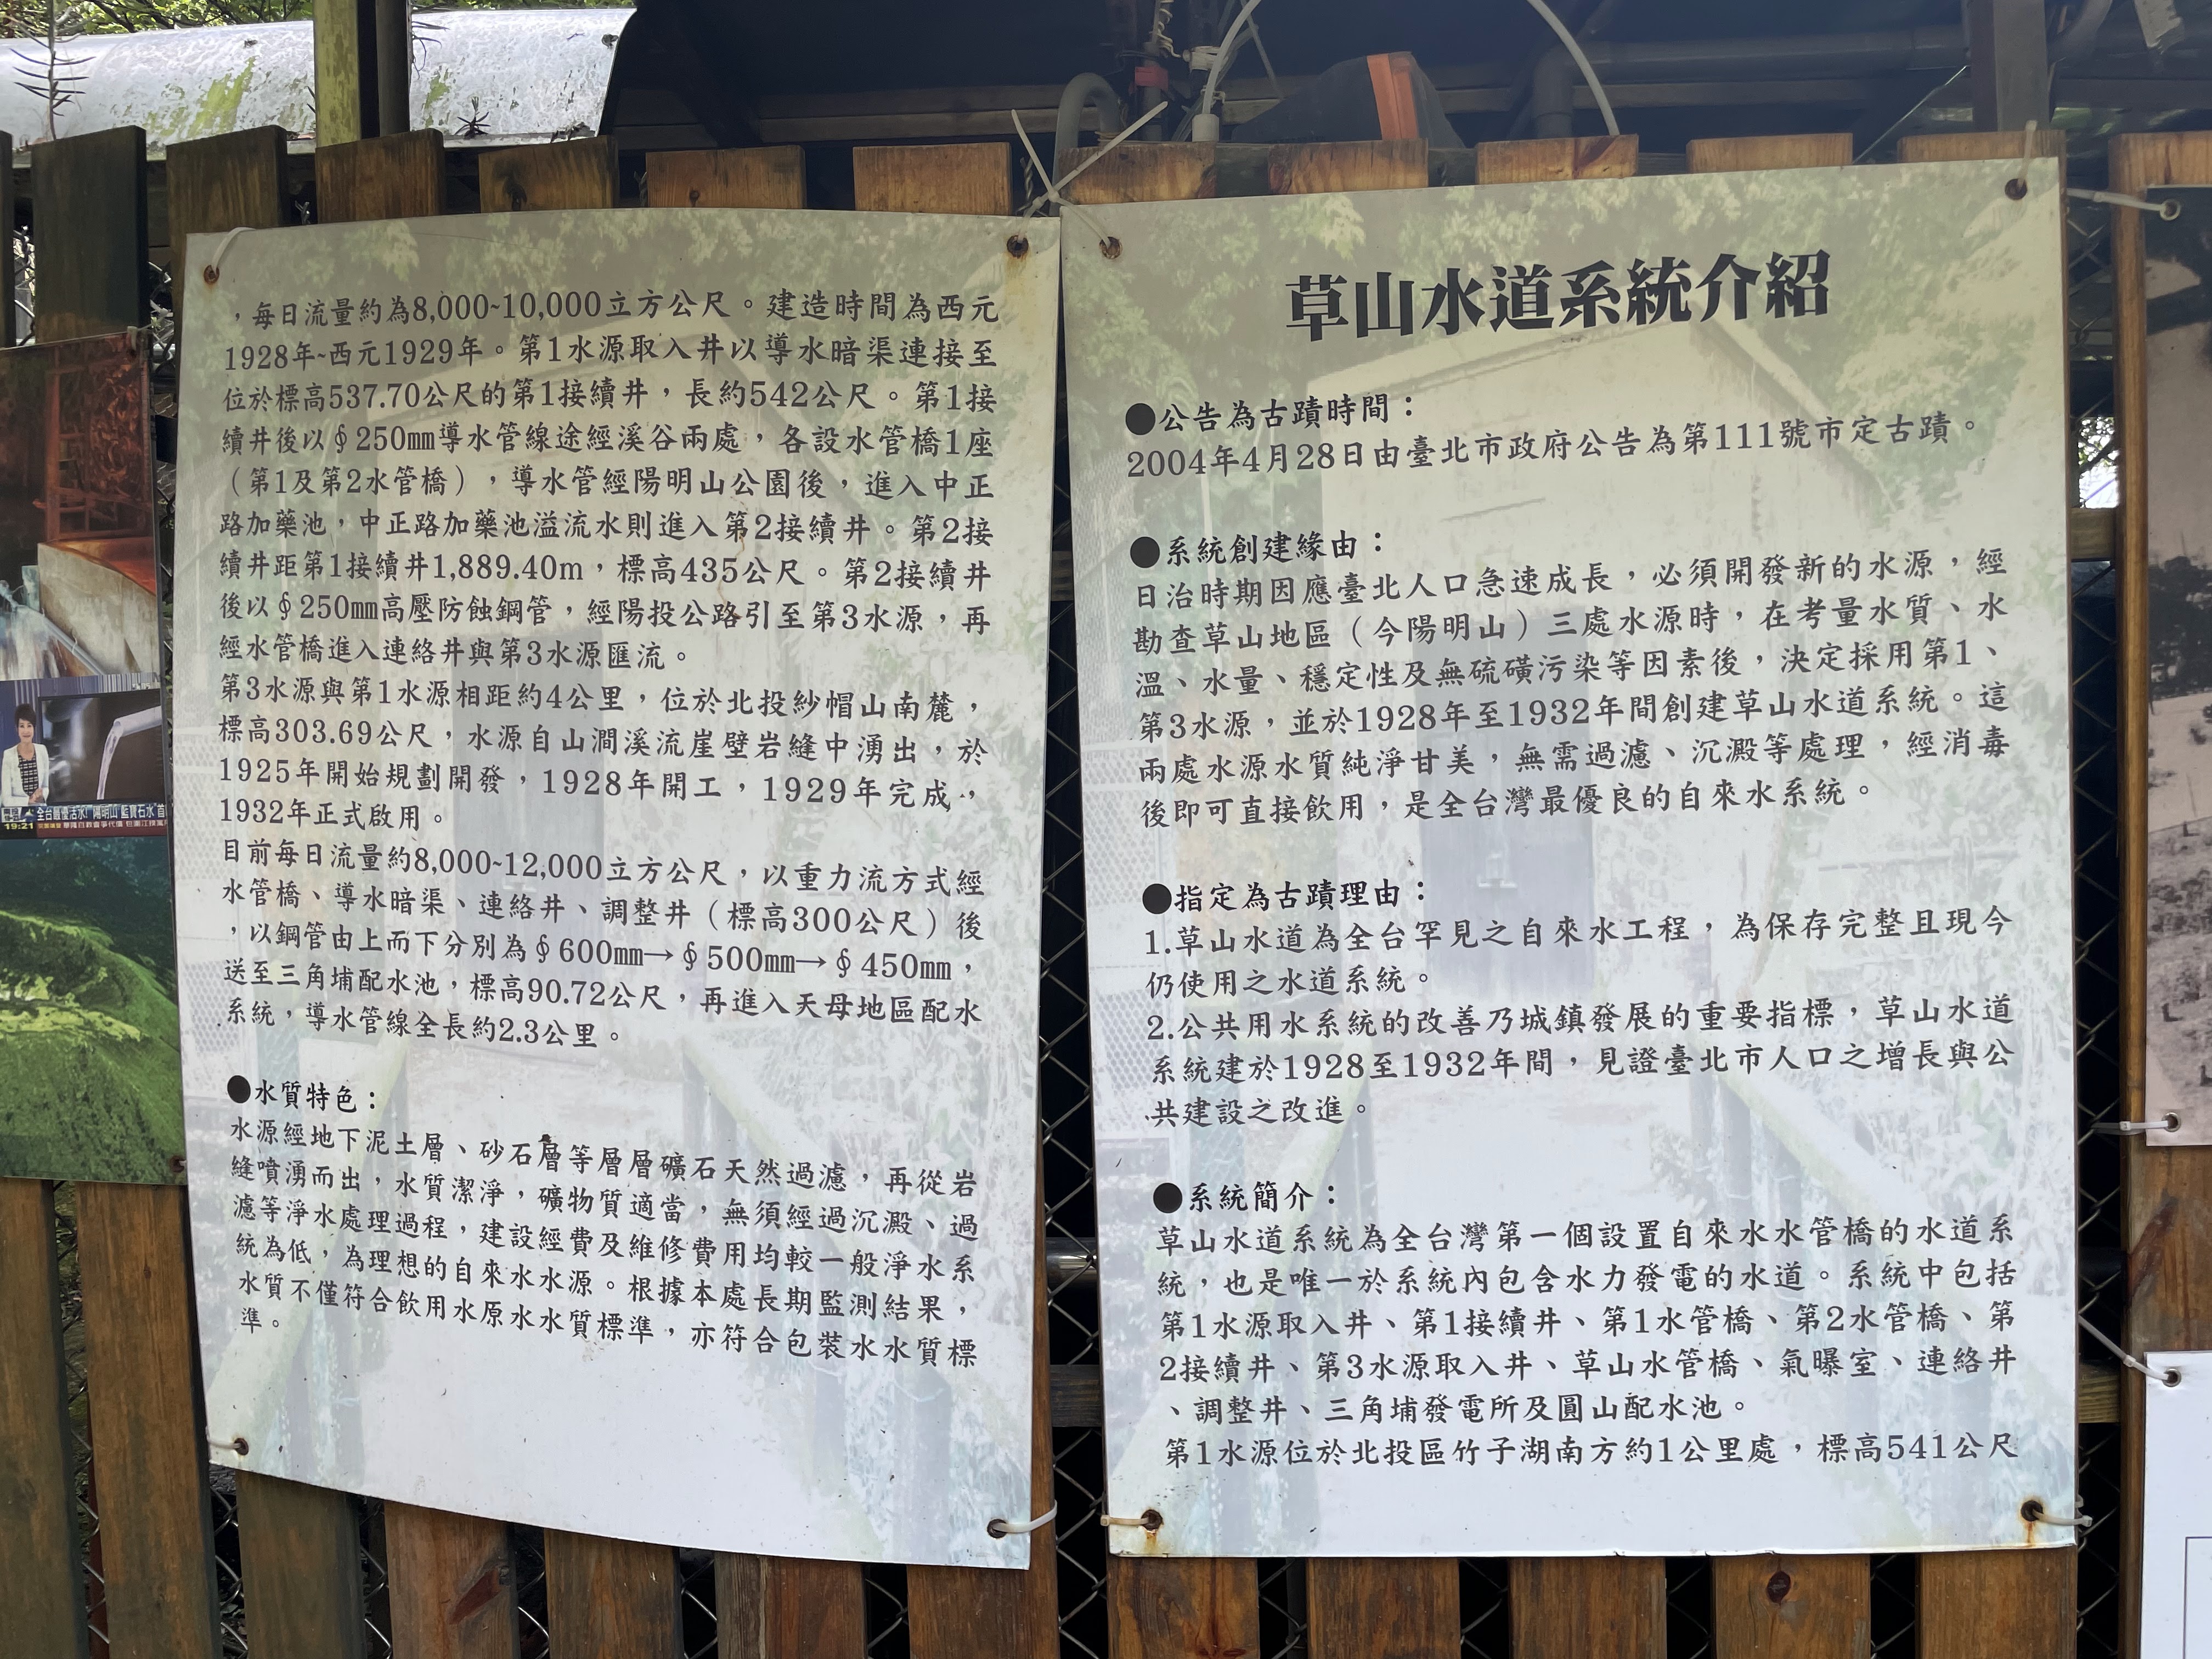 草山水道系統介紹
●公告為古蹟時間：
2004年4月28日由臺北市政府公告為第111號市定古蹟。
●系統創建緣由：
日治時期因應臺北人口急速成長，必須開發新的水源，經
勘查草山地區（今陽明山）三處水源時，在考量水質、水
溫、水量、穩定性及無硫磺污染等因素後，決定採用第1、
第3水源，並於1928年至1932年間創建草山水道系統。這
兩處水源水質純淨甘美，無需過濾、沉澱等處理，經消毒
後即可直接飲用，是全台灣最優良的自來水系統。
●指定為古蹟理由：
1.草山水道為全台罕見之自來水工程，為保存完整且現今
仍使用之水道系統。
2.公共用水系統的改善乃城鎮發展的重要指標，草山水道
系統建於1928至1932年間，見證臺北市人口之增長與公
共建設之改進。
●系統簡介：
草山水道系統為全台灣第一個設置自來水水管橋的水道系
統，也是唯一於系統內包含水力發電的水道。系統中包括
第1水源取入井、第1接續井、第1水管橋、第2水管橋、第
2接續井、第3水源取入井、草山水管橋、氣曝室、連絡井
、調整井、三角埔發電所及圓山配水池。
第1水源位於北投區竹子湖南方約1公里處，標高541公尺
，每日流量約為8,000~10,000立方公尺。建造時間為西元
1928年~西元1929年。第1水源取入井以導水暗渠連接至
位於標高537.70公尺的第1接續井，長約542公尺。第1接
續井後以∮250㎜導水管線途經溪谷兩處，各設水管橋1座
（第1及第2水管橋），導水管經陽明山公園後，進入中正
路加藥池，中正路加藥池溢流水則進入第2接續井。第2接
續井距第1接續井1,889.40m，標高435公尺。第2接續井
後以∮250㎜高壓防蝕鋼管，經陽投公路引至第3水源，再
經水管橋進入連絡井與第3水源匯流。
第3水源與第1水源相距約4公里，位於北投紗帽山南麓，
標高303.69公尺，水源自山澗溪流崖壁岩縫中湧出，於
1925年開始規劃開發，1928年開工，1929年完成，
1932年正式啟用。
目前每日流量約8,000~12,000立方公尺，以重力流方式經
水管橋、導水暗渠、連絡井、調整井（標高300公尺）後
，以鋼管由上而下分別為∮600㎜→∮500㎜→∮450㎜，
送至三角埔配水池，標高90.72公尺，再進入天母地區配水
系統，導水管線全長約2.3公里。
●水質特色：
水源經地下泥土層、砂石層等層層礦石天然過濾，再從岩
縫噴湧而出，水質潔淨，礦物質適當，無須經過沉澱、過
濾等淨水處理過程，建設經費及維修費用均較一般淨水系
統為低，為理想的自來水水源。根據本處長期監測結果，
水質不僅符合飲用水原水水質標準，亦符合包裝水水質標
準。
19:21